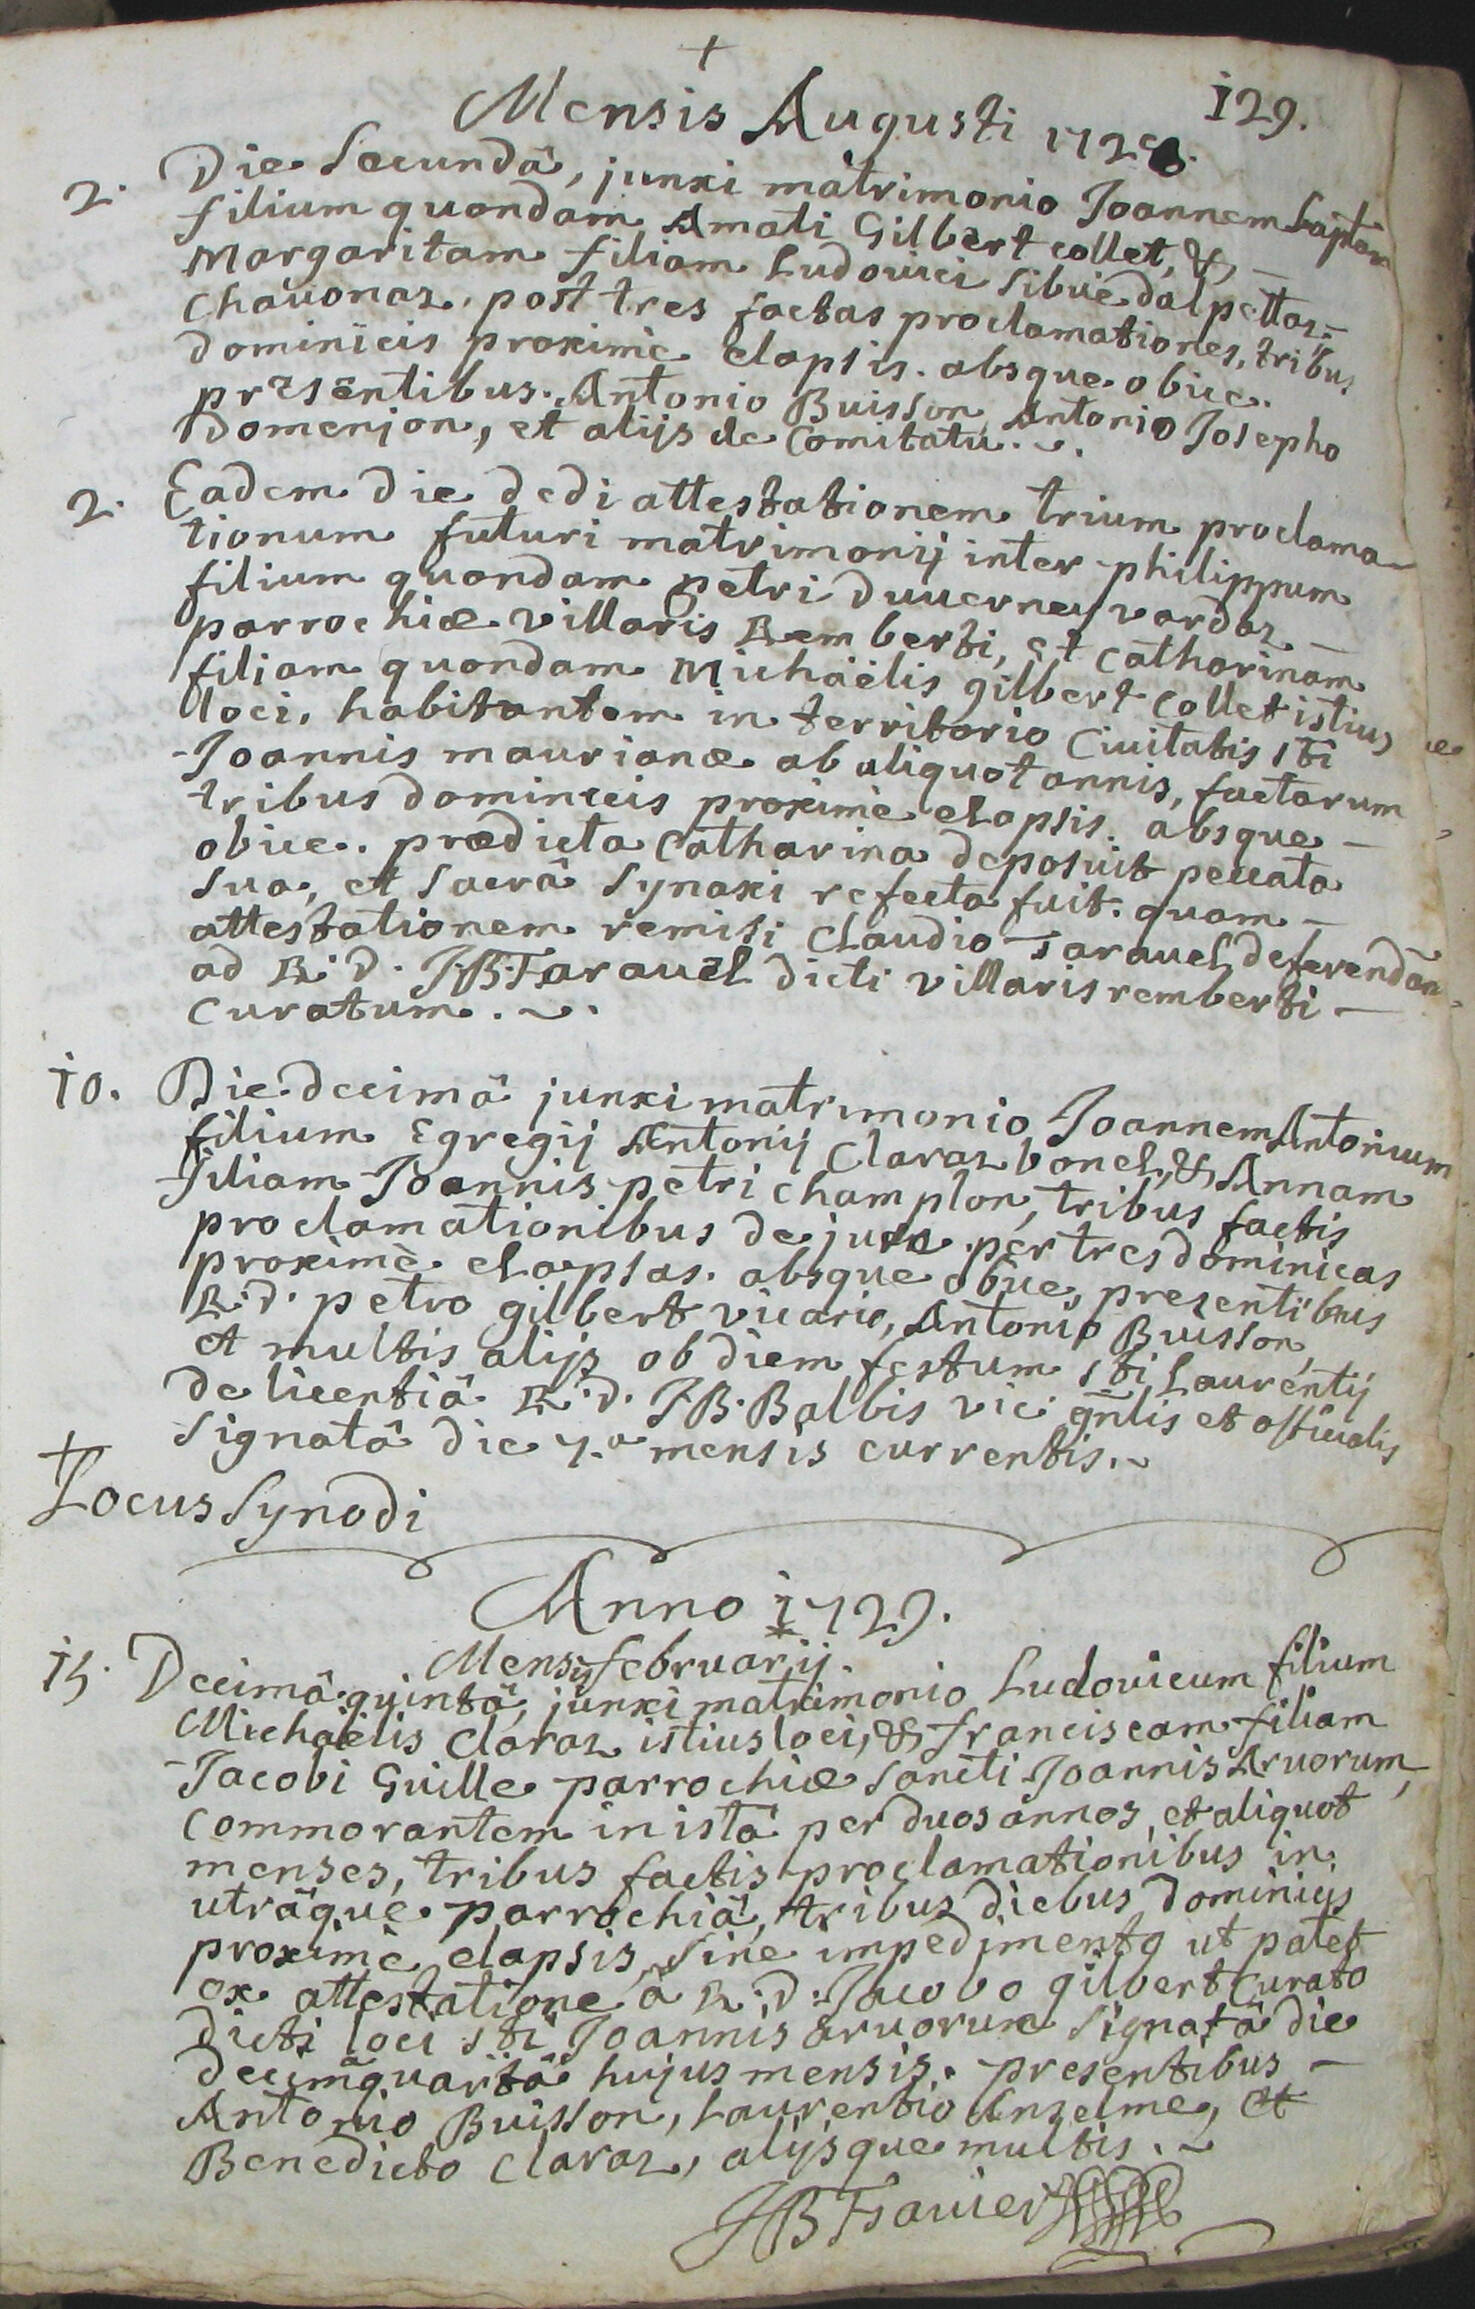 +
129.
Mensis Augusti 1728.
2. Die Secundâ, junxi matrimonio Joannem baptam
filium quondam Amati Gilbert collet, &
Margaritam filiam Ludovici Sibué dalpettaz-
Chavonaz. post tres factas proclamationes, tribus
dominicis proximè elapsis. absque obice.
præsentibus. Antonio Buisson, Antonio Josepho
Domenjon, et alijs de Comitatu.
2. Eadem die dedi attestationem trium proclama-
tionum futuri matrimonij inter philippum
filium quondam petri duverney vardaz
parrochiæ villaris Remberti, et catharinam
filiam quondam Michaëlis gilbert collet istius
loci, habitantem in territorio Civitatis sti
Joannis maurianæ ab aliquot annis, factarum
tribus dominicis proximè elapsis. absque
obice. prædicta Catharina deposuit peccata
sua, et Sacrâ Synaxi refecta fuit. quam
attestationem remisi Claudio Taravel deferendam
ad R.d. J.B. Taravel dicti villaris remberti
Curatum.
10. Die decimâ junxi matrimonio Joannem Antonium
filium Egregij Antonij Claraz bonel, & Annam
filiam Joannis petri champlon, tribus factis
proclamationibus de jure per tres dominicas
proximè elapsas. absque obice, presentibus
R.d. petro gilbert vicario, Antonio Buisson,
et multis alijs ob diem festum sti Laurentij
de licentiâ R.d. J.B. Balbis vic. gñlis et officialis
signatâ die 7.a mensis currentis.
+
Locus Synodi
Anno 1729.
Mensis februarij.
15 Decimâ quintâ, junxi matrimonio Ludovicum filium
Michaëlis Claraz istius loci, & franciscam filiam
Jacobi Guille parrochiæ Sancti Joannis Arvorum,
Commorantem in istâ per duos annos, et aliquot
menses, tribus factis proclamationibus in
utrâque parrochiâ, tribus diebus dominicis
proximè elapsis, Sine impedimento ut patet
ex attestatione â R.d. Jacobo gilbert Curato
dicti loci sti Joannis arvorum Signatâ die
decimâquartâ hujus mensis. presentibus
Antonio Buisson, Laurentio Anselme, et
Benedicto Claraz, alijsque multis.